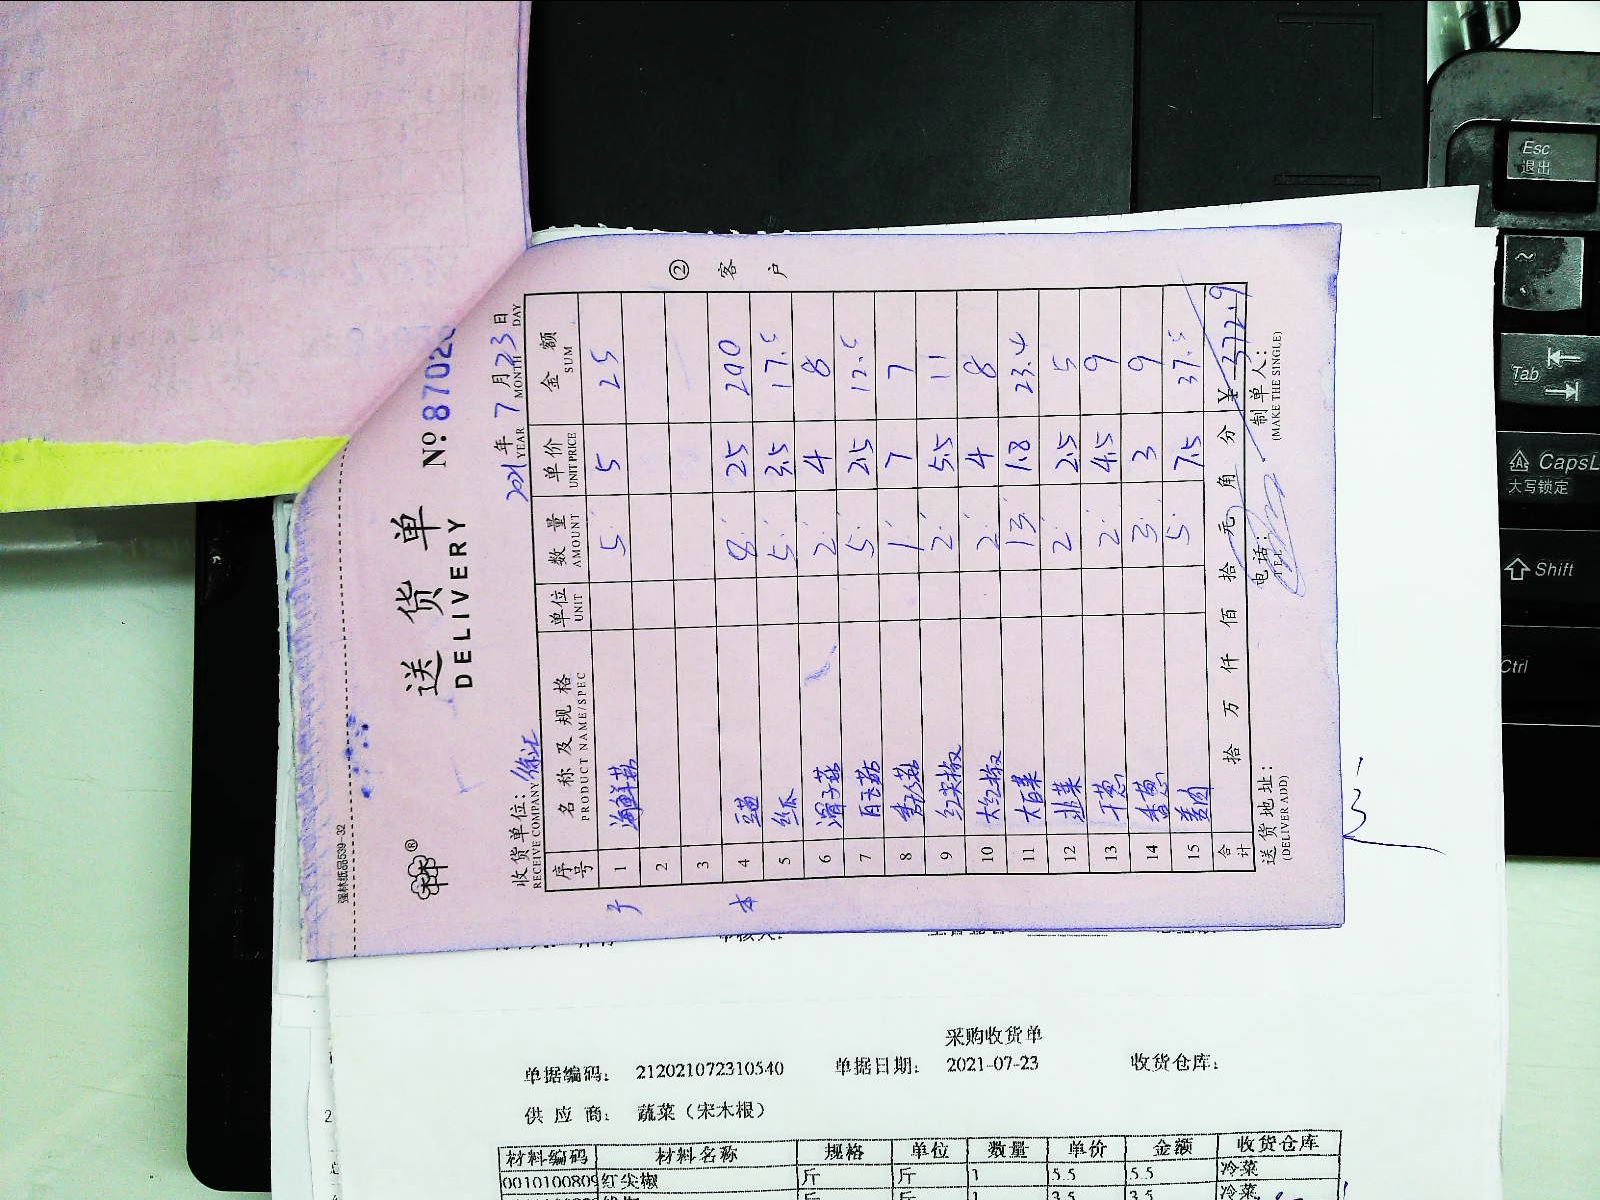 强林纸品539-32
送货单
DELIVERY
No: 87020
收货单位: 徐汇
RECEIVE COMPANY
2021 年 7 月 23 日
YEAR MONTH DAY
② 客户
序号 名称及规格 单位 数量 单价 金额
PRODUCT NAME/SPEC UNIT AMOUNT UNIT PRICE SUM
1 海鲜菇 5 5 25
2
3
4 豆苗 8 25 200
5 丝瓜 5 3.5 17.5
6 滑子菇 2 4 8
7 白玉菇 5 2.5 12.5
8 1 7 7
9 红尖椒 2 5.5 11
10 大红椒 2 4 8
11 大白菜 13 1.8 23.4
12 韭菜 2 2.5 5
13 干葱 2 4.5 9
14 香葱 3 3 9
15 姜肉 5 7.5 37.5
合计 拾 万 仟 佰 拾 元 角 分 ¥ 372.9
送货地址: 电话: 制单人:
(DELIVER ADD) TEL (MAKE THE SINGLE)
采购收货单
单据编码: 212021072310540 单据日期: 2021-07-23 收货仓库:
供应商: 蔬菜(宋木根)
材料编码 材料名称 规格 单位 数量 单价 金额 收货仓库
0010100809 红尖椒 斤 斤 1 5.5 5.5 冷菜
斤 斤 1 3.5 3.5 冷菜
Esc
退出
~
Tab
CapsL
大写锁定
Shift
Ctrl